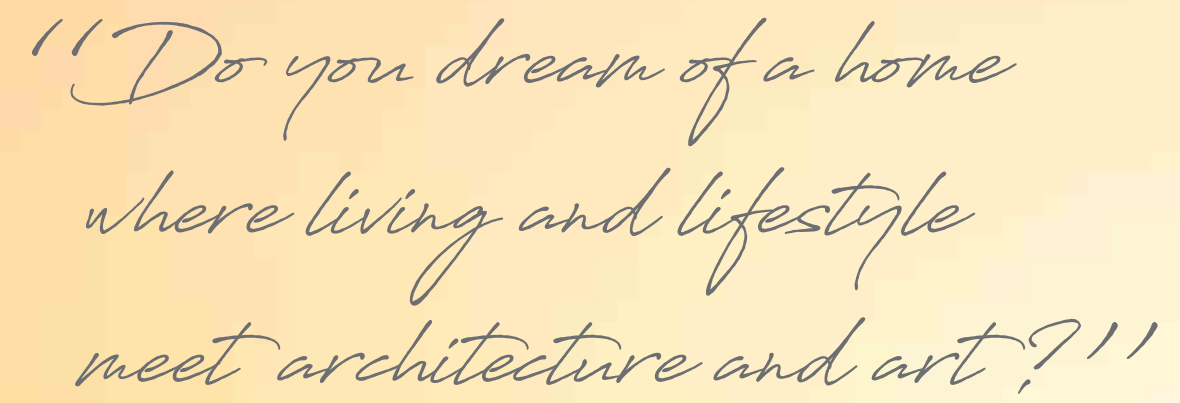 “Do you dream of a home
where living and lifestyle
meet architecture and art?”